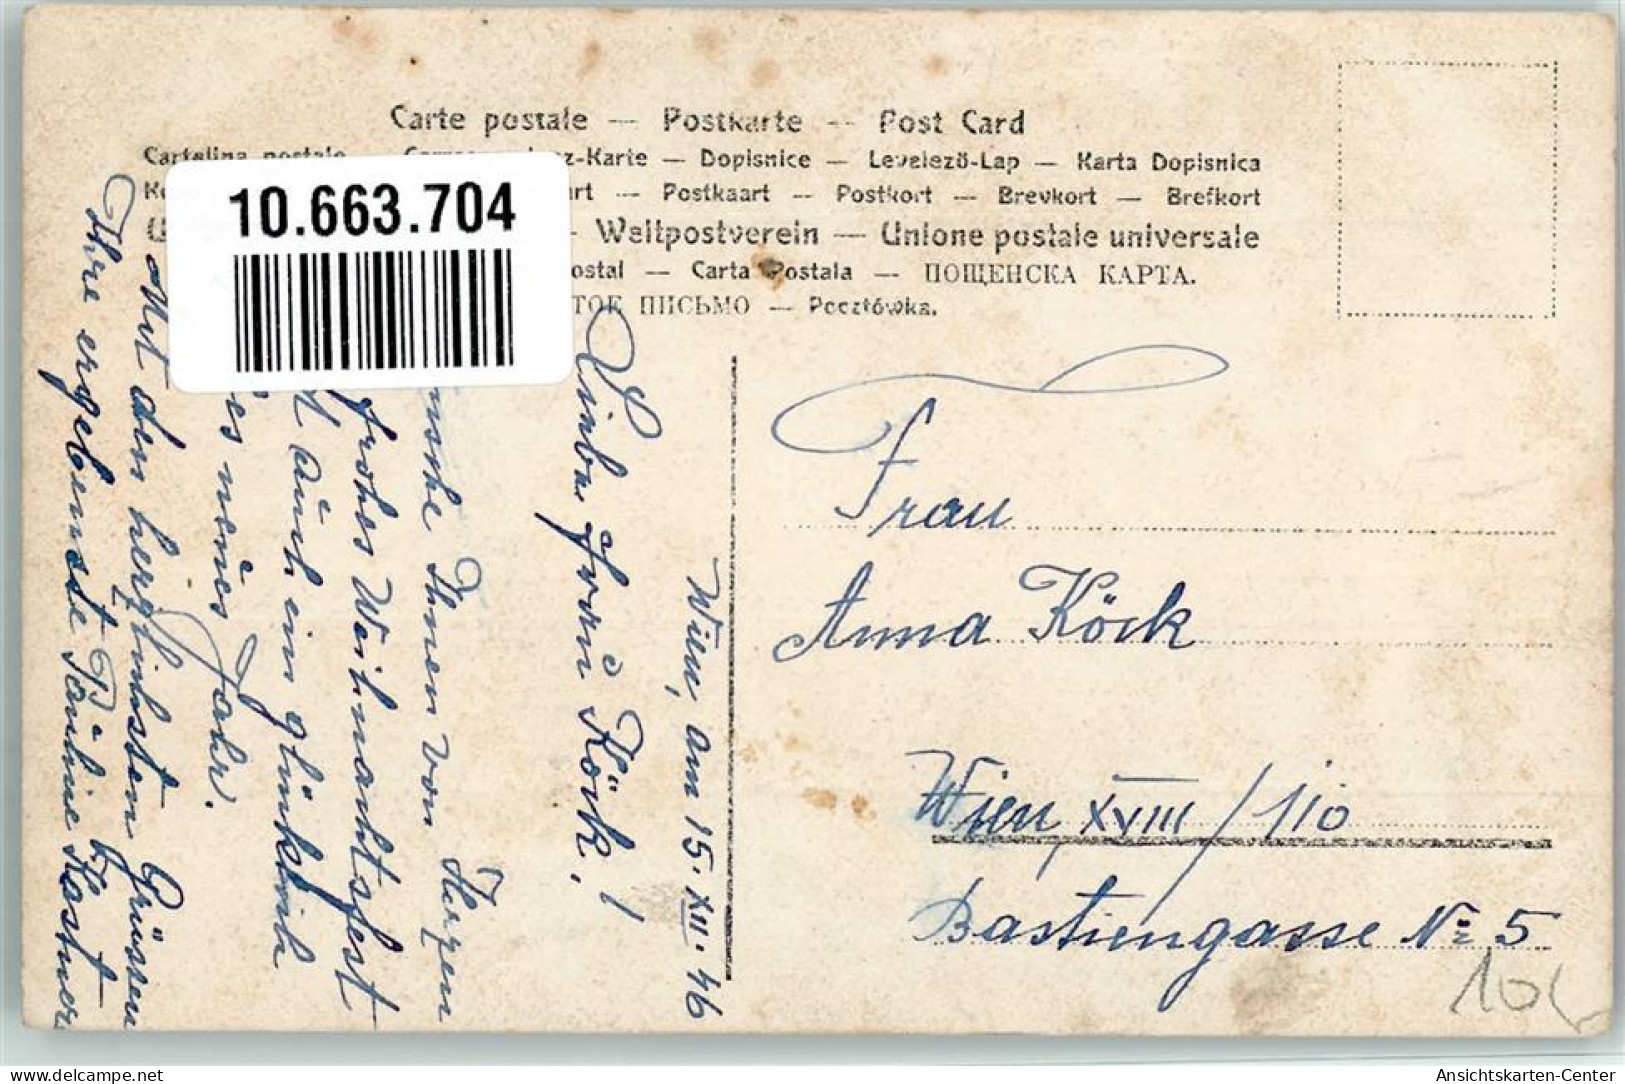 Carte postale — Postkarte — Post Card
Cartolina postale z-Karte — Dopisnice — Levelező-Lap — Karta Dopisnica
rt — Postkaart — Postkort — Brevkort — Brefkort
— Weltpostverein — Unione postale universale
ostal — Carta Postala — ПОЩЕНСКА КАРТА.
ТОЕ ПИСЬМО — Pocztówka.
10.663.704
Wien, am 15. XII. 46
Liebe Frau Köck!
nsche Ihnen von Herzen
frohes Weihnachtsfest
auch ein glücklich
es neues Jahr.
Mit den herzlichsten Grüssen
Ihre ergebenste Pauline Kostner
Frau
Anna Köck
Wien, XVIII/110
Bastiengasse № 5
10
delcampe.net
Ansichtskarten-Center